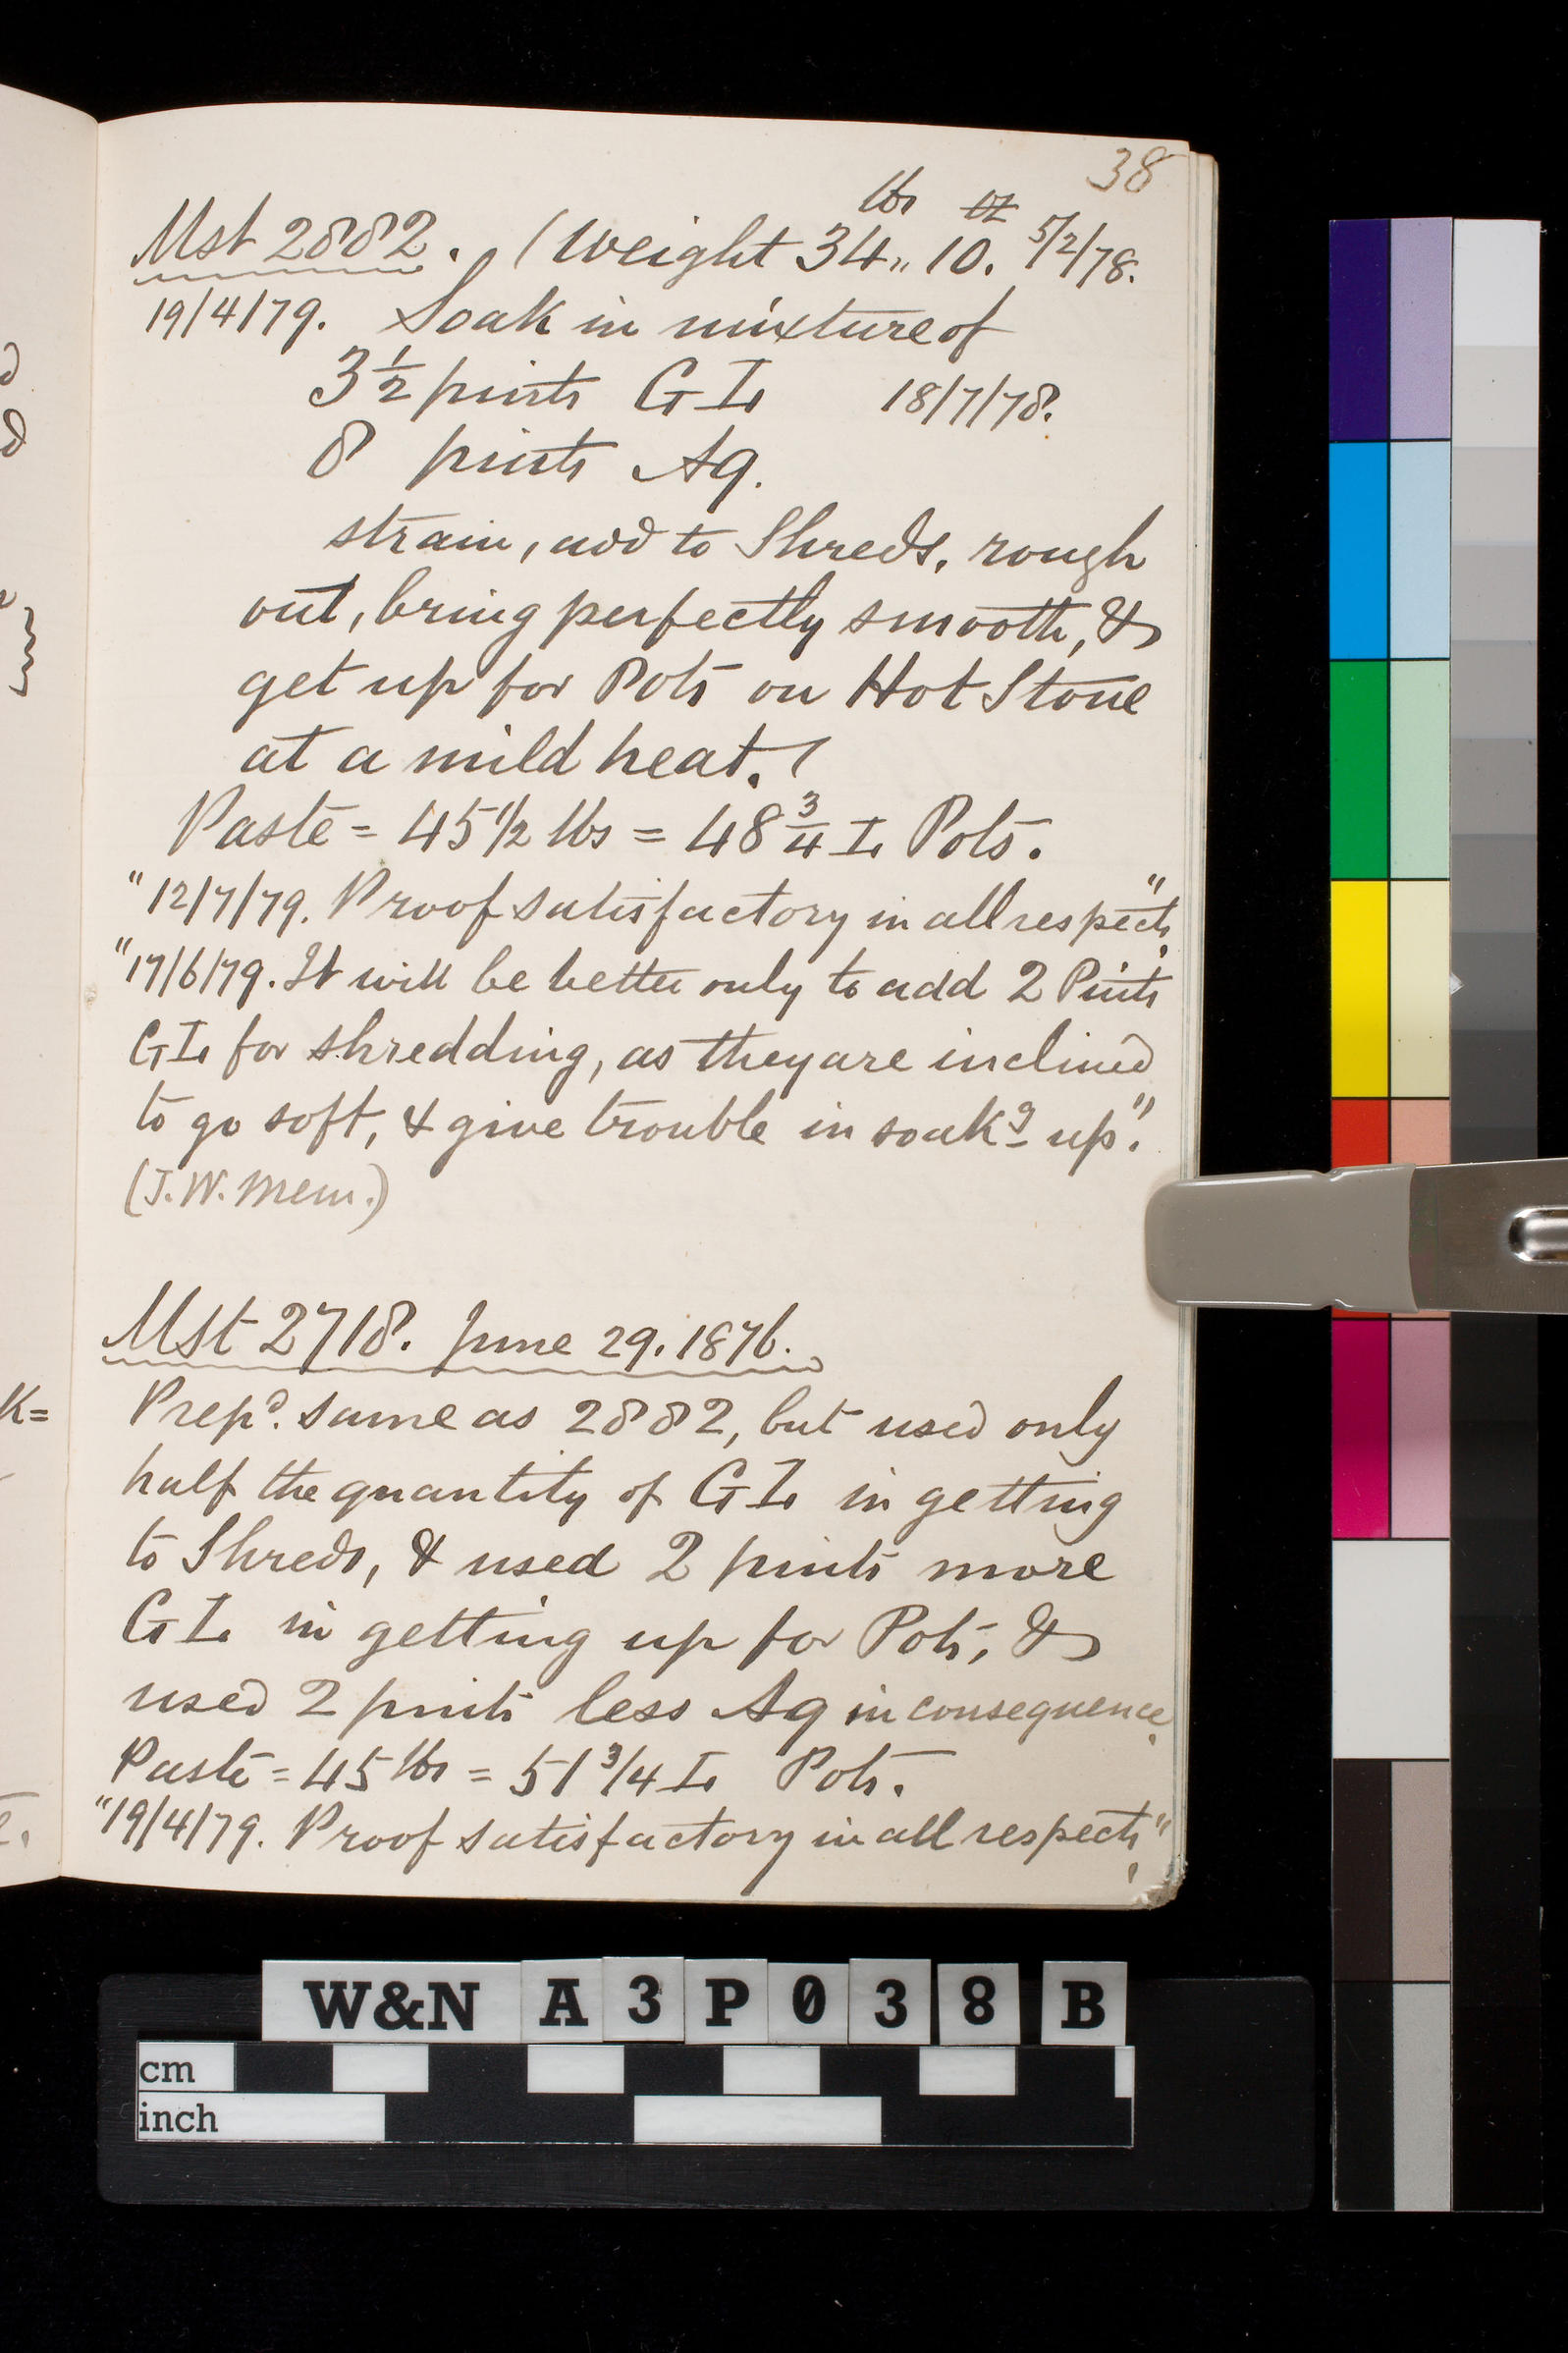 38
lbs oz
Mst 2882. (Weight 34,, 10. 5/2/78.
19/4/79. Soak in mixture of
3 1/2 pints G I. 18/7/78.
8 pints Aq.
strain, add to Shreds, rough
out, bring perfectly smooth, &
get up for Pots on Hot Stone
at a mild heat. (
Paste = 45 1/2 lbs = 48 3/4 I. Pots.
"12/7/79. Proof satisfactory in all respects."
"17/6/79. It will be better only to add 2 Pints
G I. for shredding, as they are inclined
to go soft, & give trouble in soakg up."
(J.W. Mem.)
Mst 2718. June 29. 1876.
Prepd. same as 2882, but used only
half the quantity of G I. in getting
to Shreds, & used 2 pints more
G I. in getting up for Pots, &
used 2 pints less Aq in consequence.
Paste = 45 lbs = 51 3/4 I. Pots.
"19/4/79. Proof satisfactory in all respects."
K=
W&N A 3 P 0 3 8 B
cm
inch